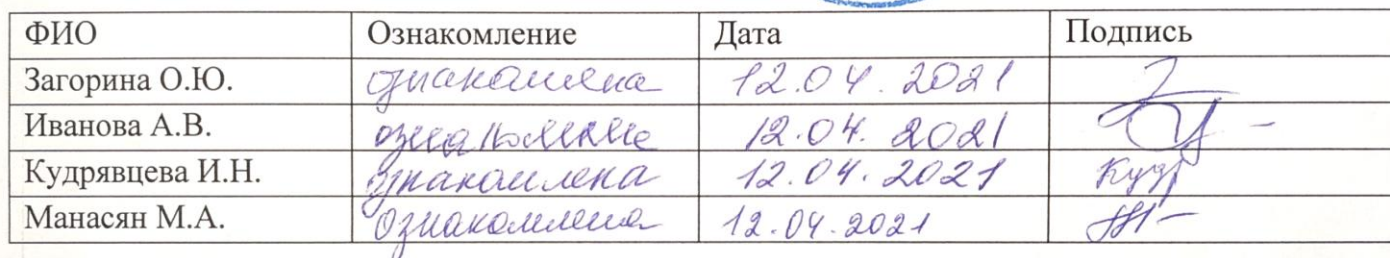 ФИО Ознакомление Дата Подпись
Загорина О.Ю. ознакомлена 12.04.2021
Иванова А.В. ознакомлена 12.04.2021
Кудрявцева И.Н. ознакомлена 12.04.2021 Кудр
Манасян М.А. ознакомлена 12.04.2021